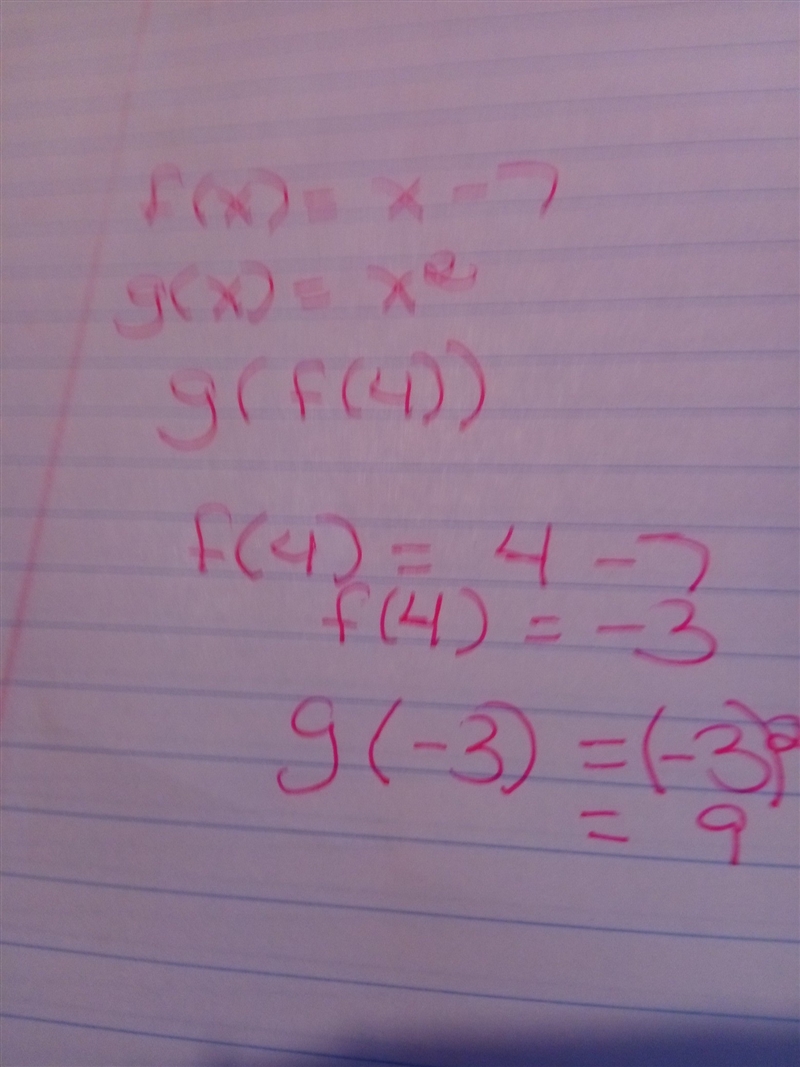 f(x) = x - 7
g(x) = x²
g(f(4))
f(4) = 4 - 7
f(4) = -3
g(-3) = (-3)²
= 9